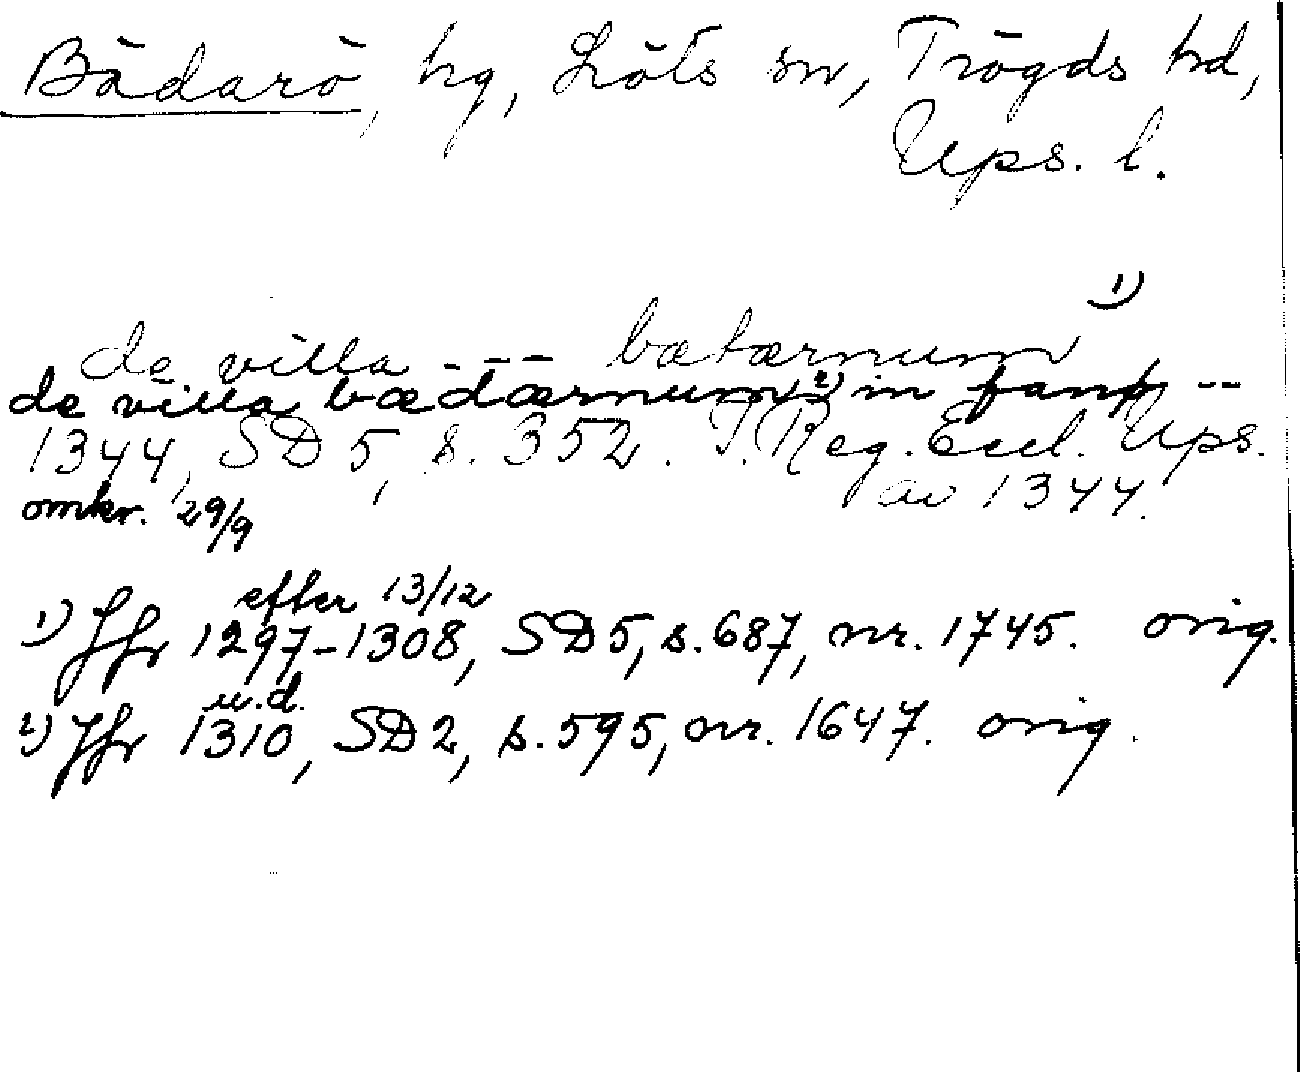 Bädarö, hg, Löts sn, Trögds hd,
Ups. l.
de villa --- bætærnum 1)
de villa bædærnum 2) in fanþ --
1344, SD 5, s. 352. I. Reg. Eccl. Ups.
av 1344.
omkr. 29/9
efter 13/12
1) Jfr 1297-1308, SD5, s. 687, nr. 1745. orig.
u.d.
2) Jfr 1310, SD2, s. 595, nr. 1647. orig.